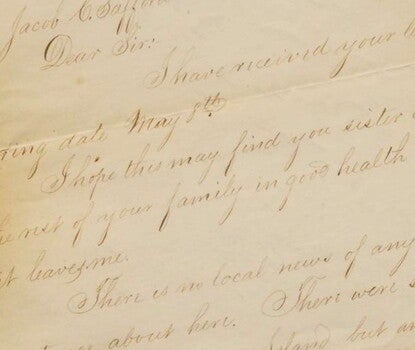 Jacob C. Safford
Dear Sir:
I have received your
ring date May 8th
I hope this may find you sister
he rest of your family in good health
it leaves me.
There is no local news of any
about here. There were s
Island but an